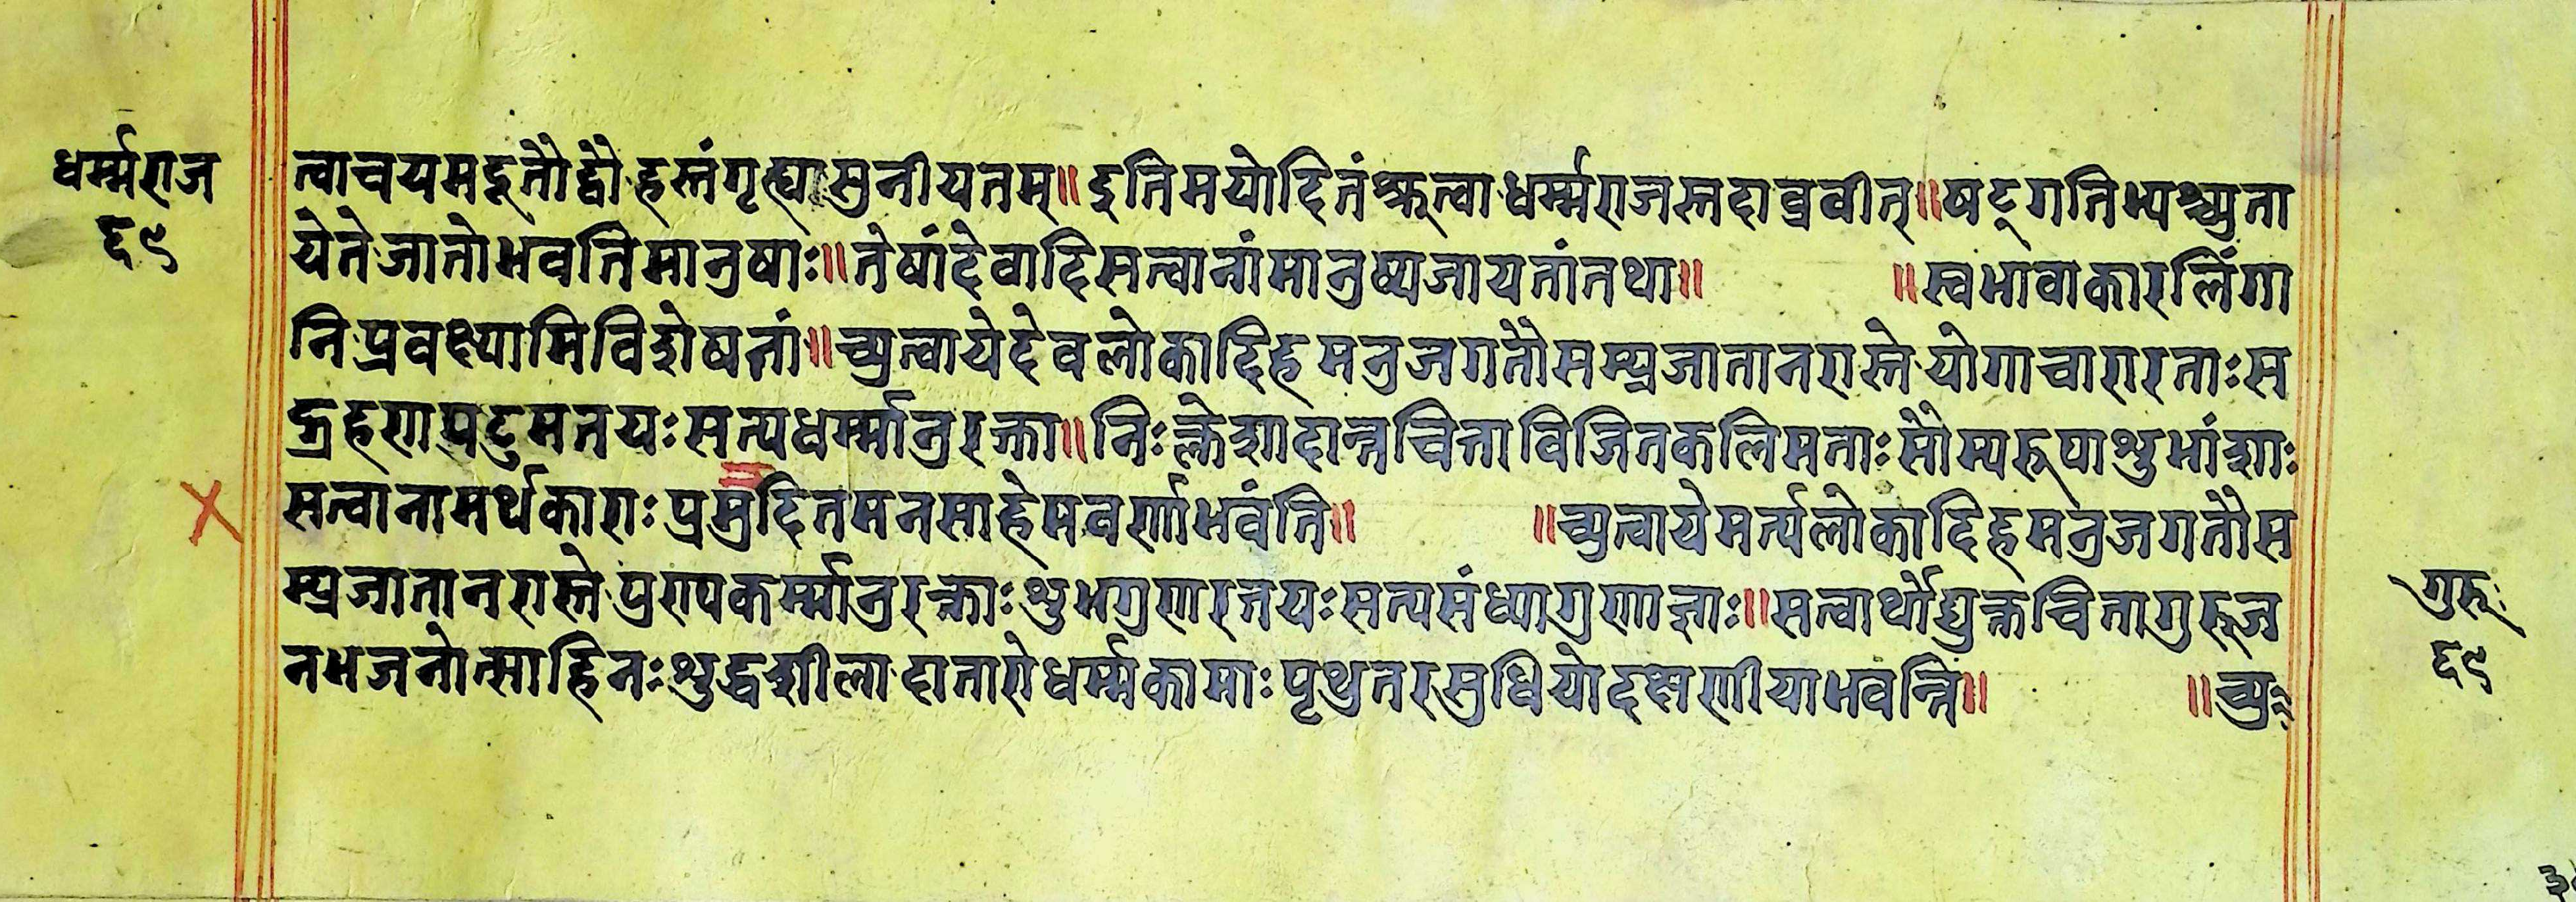 धर्म्मराज
६९
त्वाचयमदूतौद्वौहस्तंगृह्यासुनीयतम्॥इतिमयोदितंश्रुत्वाधर्म्मराजस्तदाव्रवीत्॥षट्गतिभ्यश्च्युता
येतेजातोभवतिमानुषाः॥तेषांदेवादिसत्वानांमानुष्यजायतांतथा॥ ॥स्वभावाकारलिंगा
निप्रवक्ष्यामिविशेषतां॥च्युत्वायेदेवलोकादिहमनुजगतौसम्प्रजातानरास्तेयोगाचारारताःस
द्ग्रहणपटुमतयःसत्यधर्म्मानुरक्ता॥निःक्लेशादान्तचित्ताविजितकलिमताःसौम्यरूपाशुभांशाः
सत्वानामर्थकाराःप्रमुदितमनसाहेमवर्णाभवंति॥ ॥च्युत्वायेमर्त्यलोकादिहमनुजगतौस
म्प्रजातानरास्तेपुण्यकर्म्मानुरक्ताःशुभगुणरतयःसत्यसंध्यागुणाज्ञाः॥सत्वार्थोद्युक्तचित्तागुरूज
नभजनोत्साहिनःशुद्धशीलादातारोधर्म्मकामाःपृथुतरसुधियोदक्षणीयाभवन्ति॥ ॥च्युः
गुरूः
६९